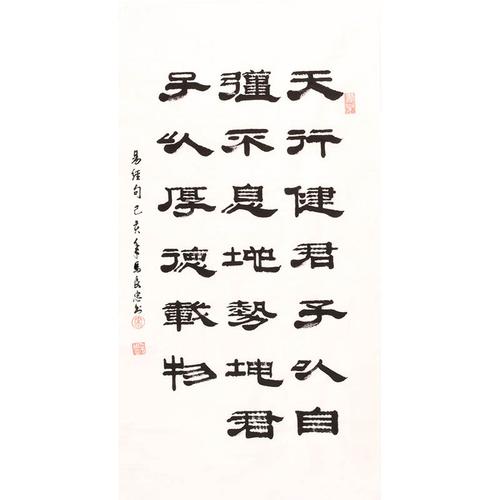 天行健君子以自
彊不息地勢坤君
子以厚德載物
易經句己亥年馬良忠书